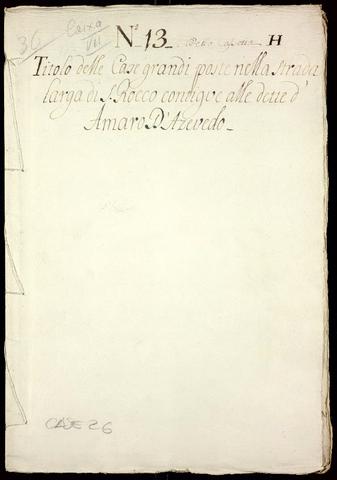 36 Caixa
VII
N.º 13 H
Titolo delle Case grandi poste nella strada
larga di S. Rocco contigve alle dette d'
Amaro D'Azevedo_
CASE 26